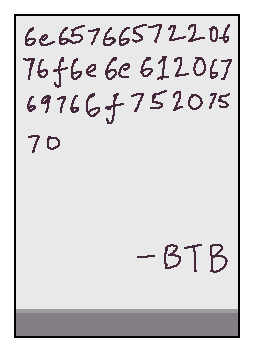 6e65766572206
76f6e6e612067
69766f752075
70
-BTB